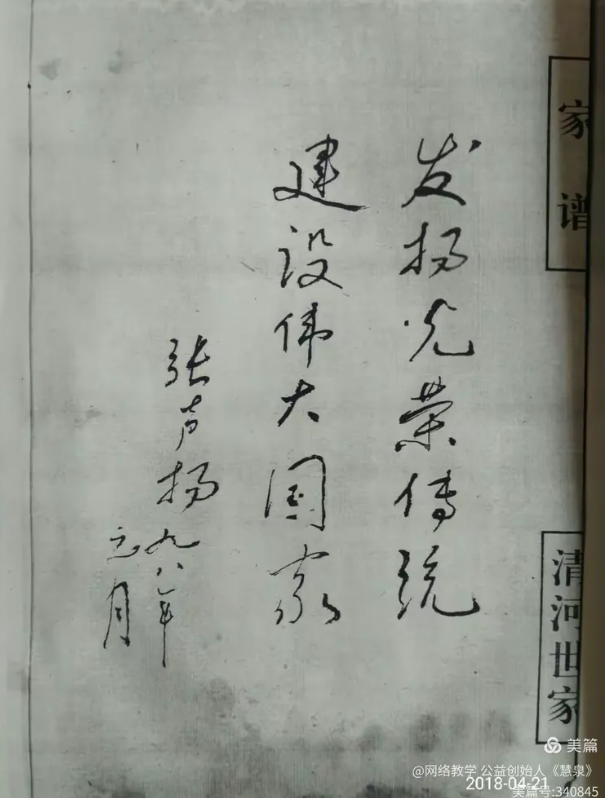 家谱
清河世家
发扬光荣传统
建设伟大国家
张声扬九八年
元月
美篇
@网络教学 公益创始人《慧泉》
2018-04-21
美篇号:340845